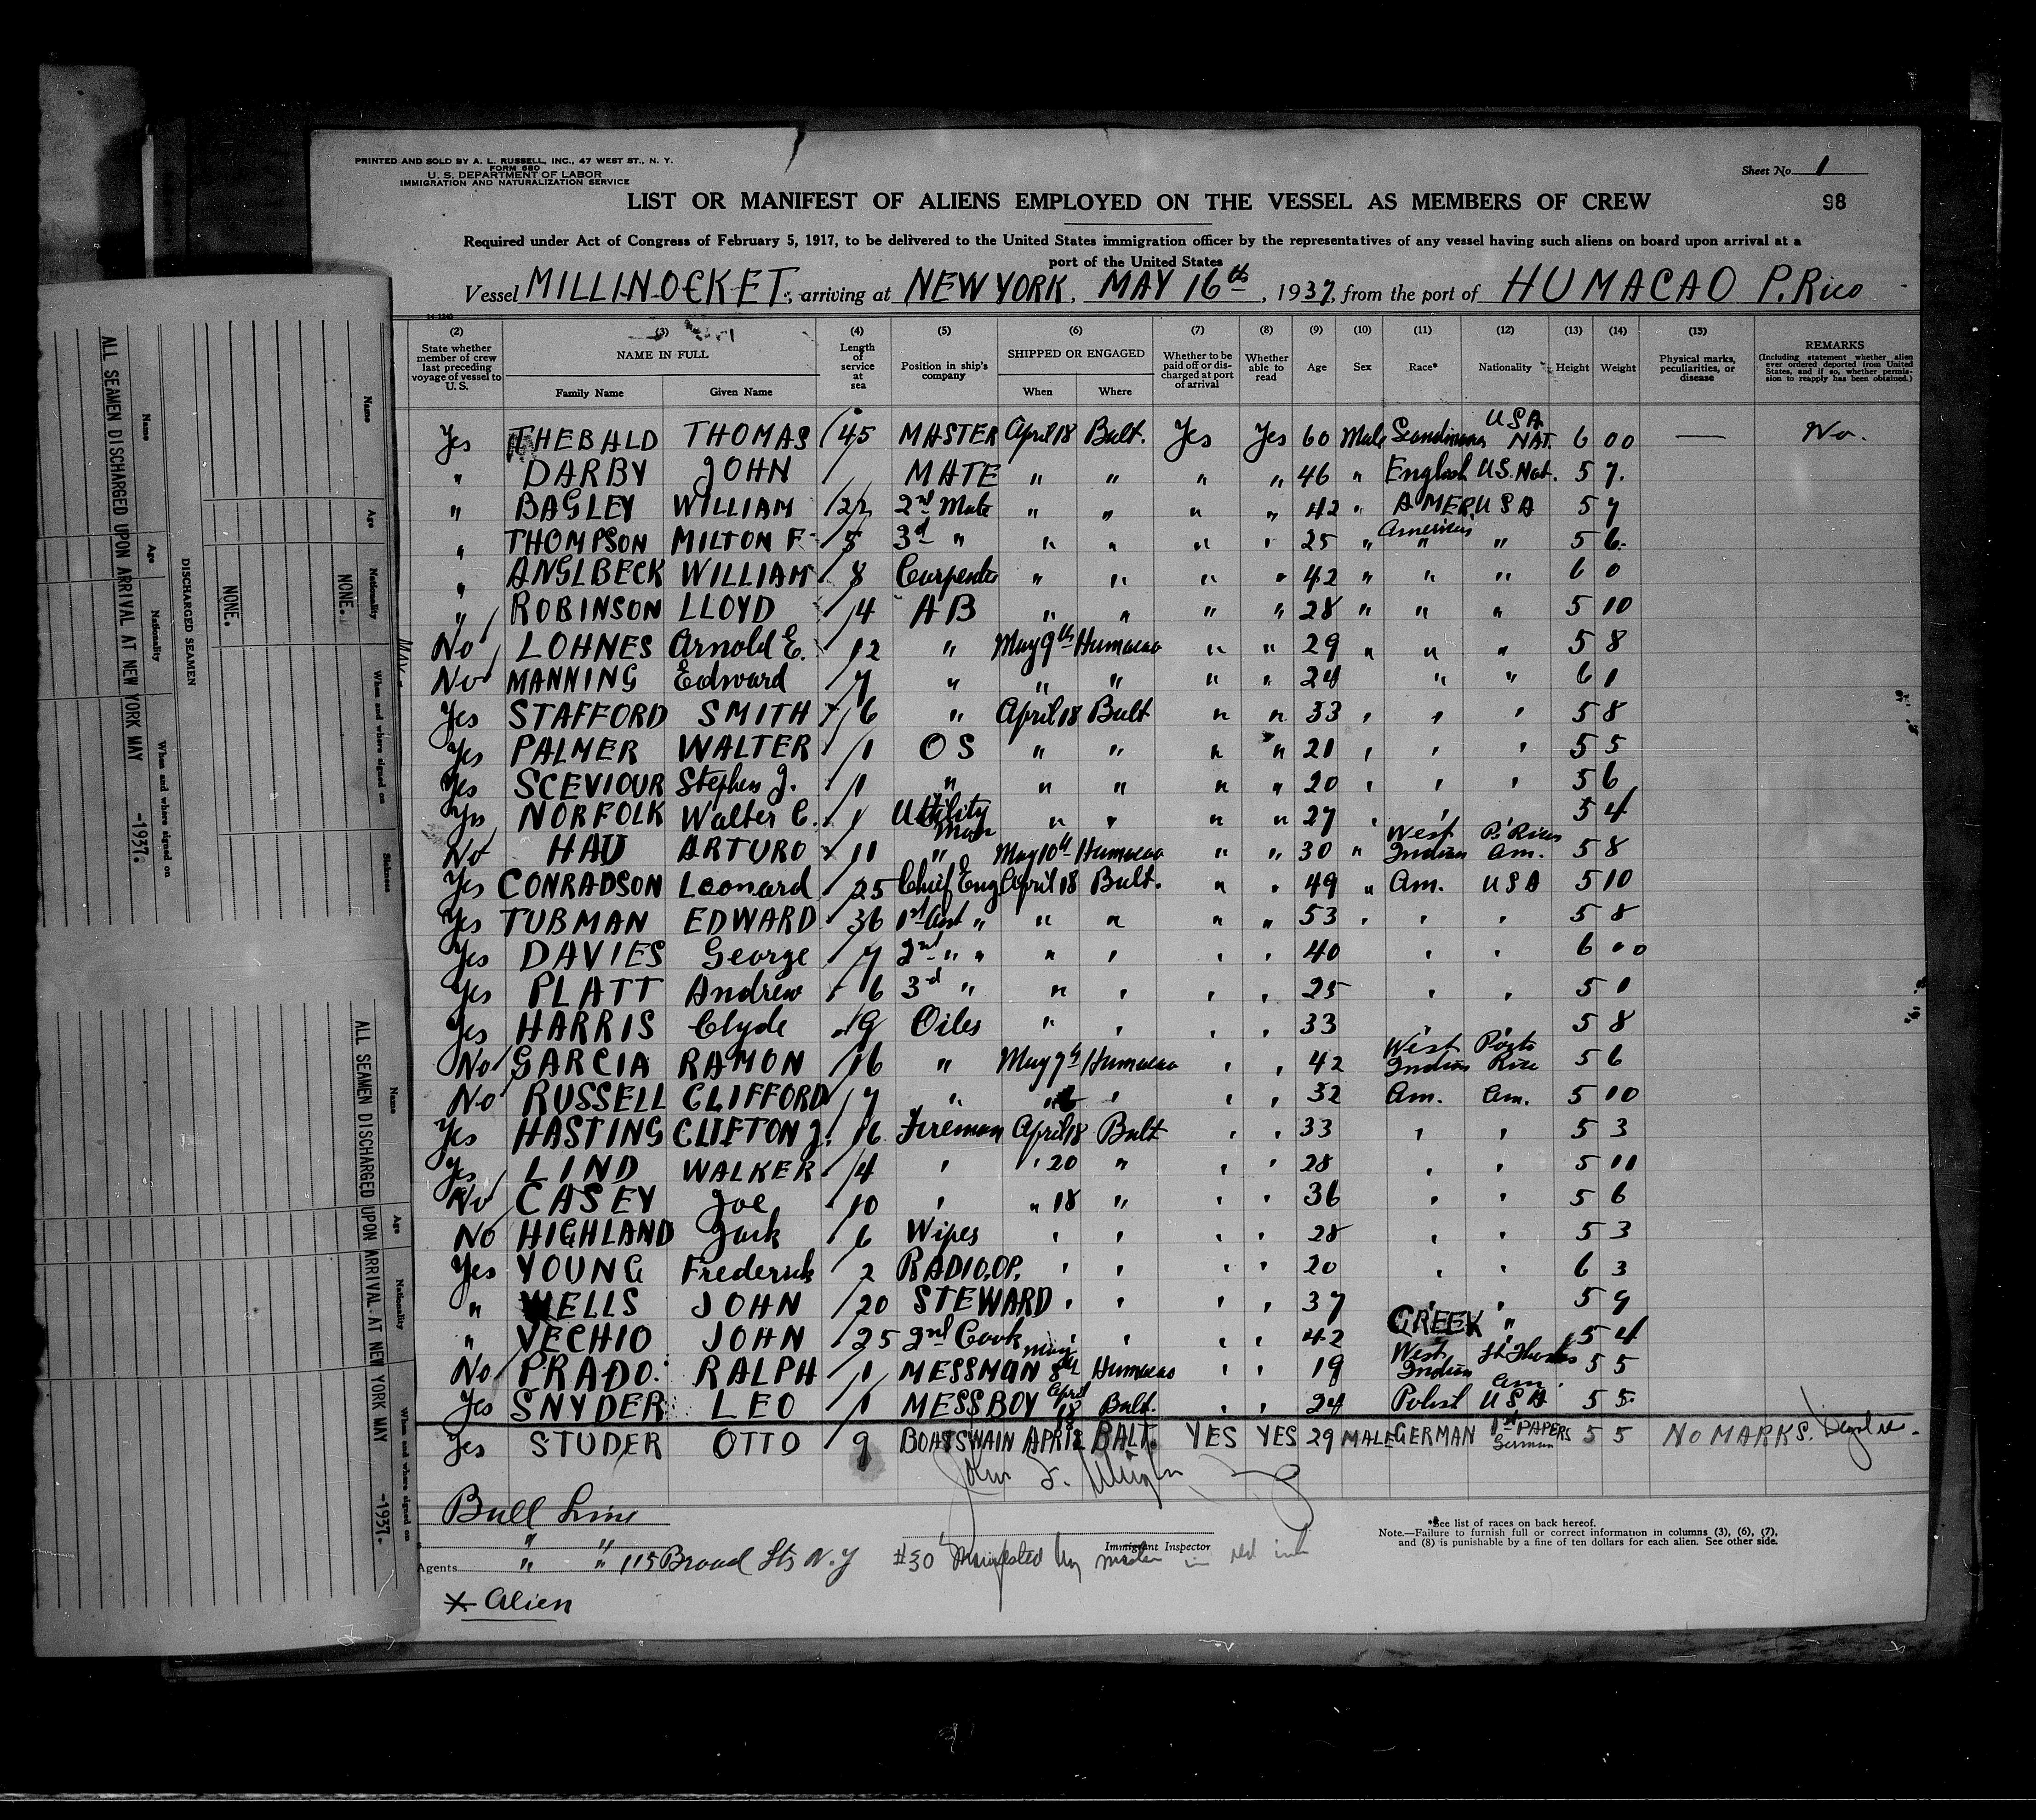 PRINTED AND SOLD BY A. L. RUSSELL, INC., 47 WEST ST., N. Y.
FORM 680
U. S. DEPARTMENT OF LABOR
IMMIGRATION AND NATURALIZATION SERVICE
Sheet No. 1
LIST OR MANIFEST OF ALIENS EMPLOYED ON THE VESSEL AS MEMBERS OF CREW
98
Required under Act of Congress of February 5, 1917, to be delivered to the United States immigration officer by the representatives of any vessel having such aliens on board upon arrival at a
port of the United States
Vessel MILLINOCKET, arriving at NEW YORK, MAY 16th, 1937, from the port of HUMACAO P. Rico
(2) (3) (4) (5) (6) (7) (8) (9) (10) (11) (12) (13) (14) (15)
State whether member of crew last preceding voyage of vessel to U.S. NAME IN FULL Family Name Given Name Length of service at sea Position in ship's company SHIPPED OR ENGAGED When Where Whether to be paid off or discharged at port of arrival Whether able to read Age Sex Race* Nationality Height Weight Physical marks, peculiarities, or disease REMARKS (Including statement whether alien ever ordered deported from United States, and if so, whether permission to reapply has been obtained.)
Yes THEBALD THOMAS 45 MASTER April 18 Balt. Yes Yes 60 Male USA NAT. 6 00 — No.
" DARBY JOHN MATE " " " " 46 " English U.S. Nat. 5 7.
" BAGLEY WILLIAM 22 2nd Mate " " " " 42 " AMER USA 5 7
" THOMPSON MILTON F. 5 3d " " " " " 25 " American " " 5 6.
" ANGLBECK WILLIAM 8 Carpenter " " " " 42 " " " 6 0
" ROBINSON LLOYD 4 AB " " " " 28 " " " 5 10
No LOHNES Arnold E. 12 " May 9th Humacao " " 29 " " " 5 8
No MANNING Edward 7 " " " " " 24 " " 6 1
Yes STAFFORD SMITH 6 " April 18 Balt " " 33 " " " 5 8
Yes PALMER WALTER 1 OS " " " " 21 " " " 5 5
Yes SCEVIOUR Stephen J. 1 " " " " " 20 " " " 5 6
Yes NORFOLK Walter C. 1 Utility Man " " " " 27 " " 5 4
No HAU ARTURO 11 " May 10th Humacao " " 30 " West Indian P. Rican Am. 5 8
Yes CONRADSON Leonard 25 Chief Eng April 18 Balt. " " 49 " Am. USA 5 10
Yes TUBMAN EDWARD 36 1st Asst " " " " " 53 " " " 5 8
Yes DAVIES George 7 2nd " " " " " " 40 " " 6 00
Yes PLATT Andrew 6 3d " " " " " 25 " " 5 1
Yes HARRIS Clyde 9 Oiler " " " " 33 " " 5 8
No GARCIA RAMON 16 " May 7th Humacao " " 42 West Indian Porto Rico 5 6
No RUSSELL CLIFFORD 7 " " " " 32 Am. Am. 5 10
Yes HASTING CLIFTON J. 16 Fireman April 18 Balt " " 33 " " 5 3
Yes LIND WALKER 4 " " 20 " " " 28 " " 5 11
No CASEY Joe 10 " " 18 " " " 36 " " 5 6
No HIGHLAND Jack 6 Wiper " " " " 28 " " 5 3
Yes YOUNG Frederick 2 RADIO.OP. " " " " 20 " " 6 3
" WELLS JOHN 20 STEWARD " " " " 37 " " 5 9
" VECHIO JOHN 25 2nd Cook " " " " 42 GREEK " 5 4
No PRADO. RALPH 1 MESSMAN May 8th Humacao " " 19 West Indian St Thomas Am. 5 5
Yes SNYDER LEO 1 MESSBOY April 18 Balt. " " 24 Polish USA 5 5
Yes STUDER OTTO 9 BOATSWAIN APR 18 BALT. YES YES 29 MALE GERMAN 1st PAPERS German 5 5 NO MARKS.
Bull Line
" "
Immigrant Inspector
Agents " " 115 Broad Sts N.Y
#30 Manifested by master in red ink
* Alien
*See list of races on back hereof.
Note.—Failure to furnish full or correct information in columns (3), (6), (7),
and (8) is punishable by a fine of ten dollars for each alien. See other side.
ALL SEAMEN DISCHARGED UPON ARRIVAL AT NEW YORK MAY -1937.
Name Age Nationality When and where signed on
DISCHARGED SEAMEN
NONE.
NONE.
Name Age Nationality When and where signed on Sickness
ALL SEAMEN DISCHARGED UPON ARRIVAL AT NEW YORK MAY -1937.
Name Age Nationality When and where signed on